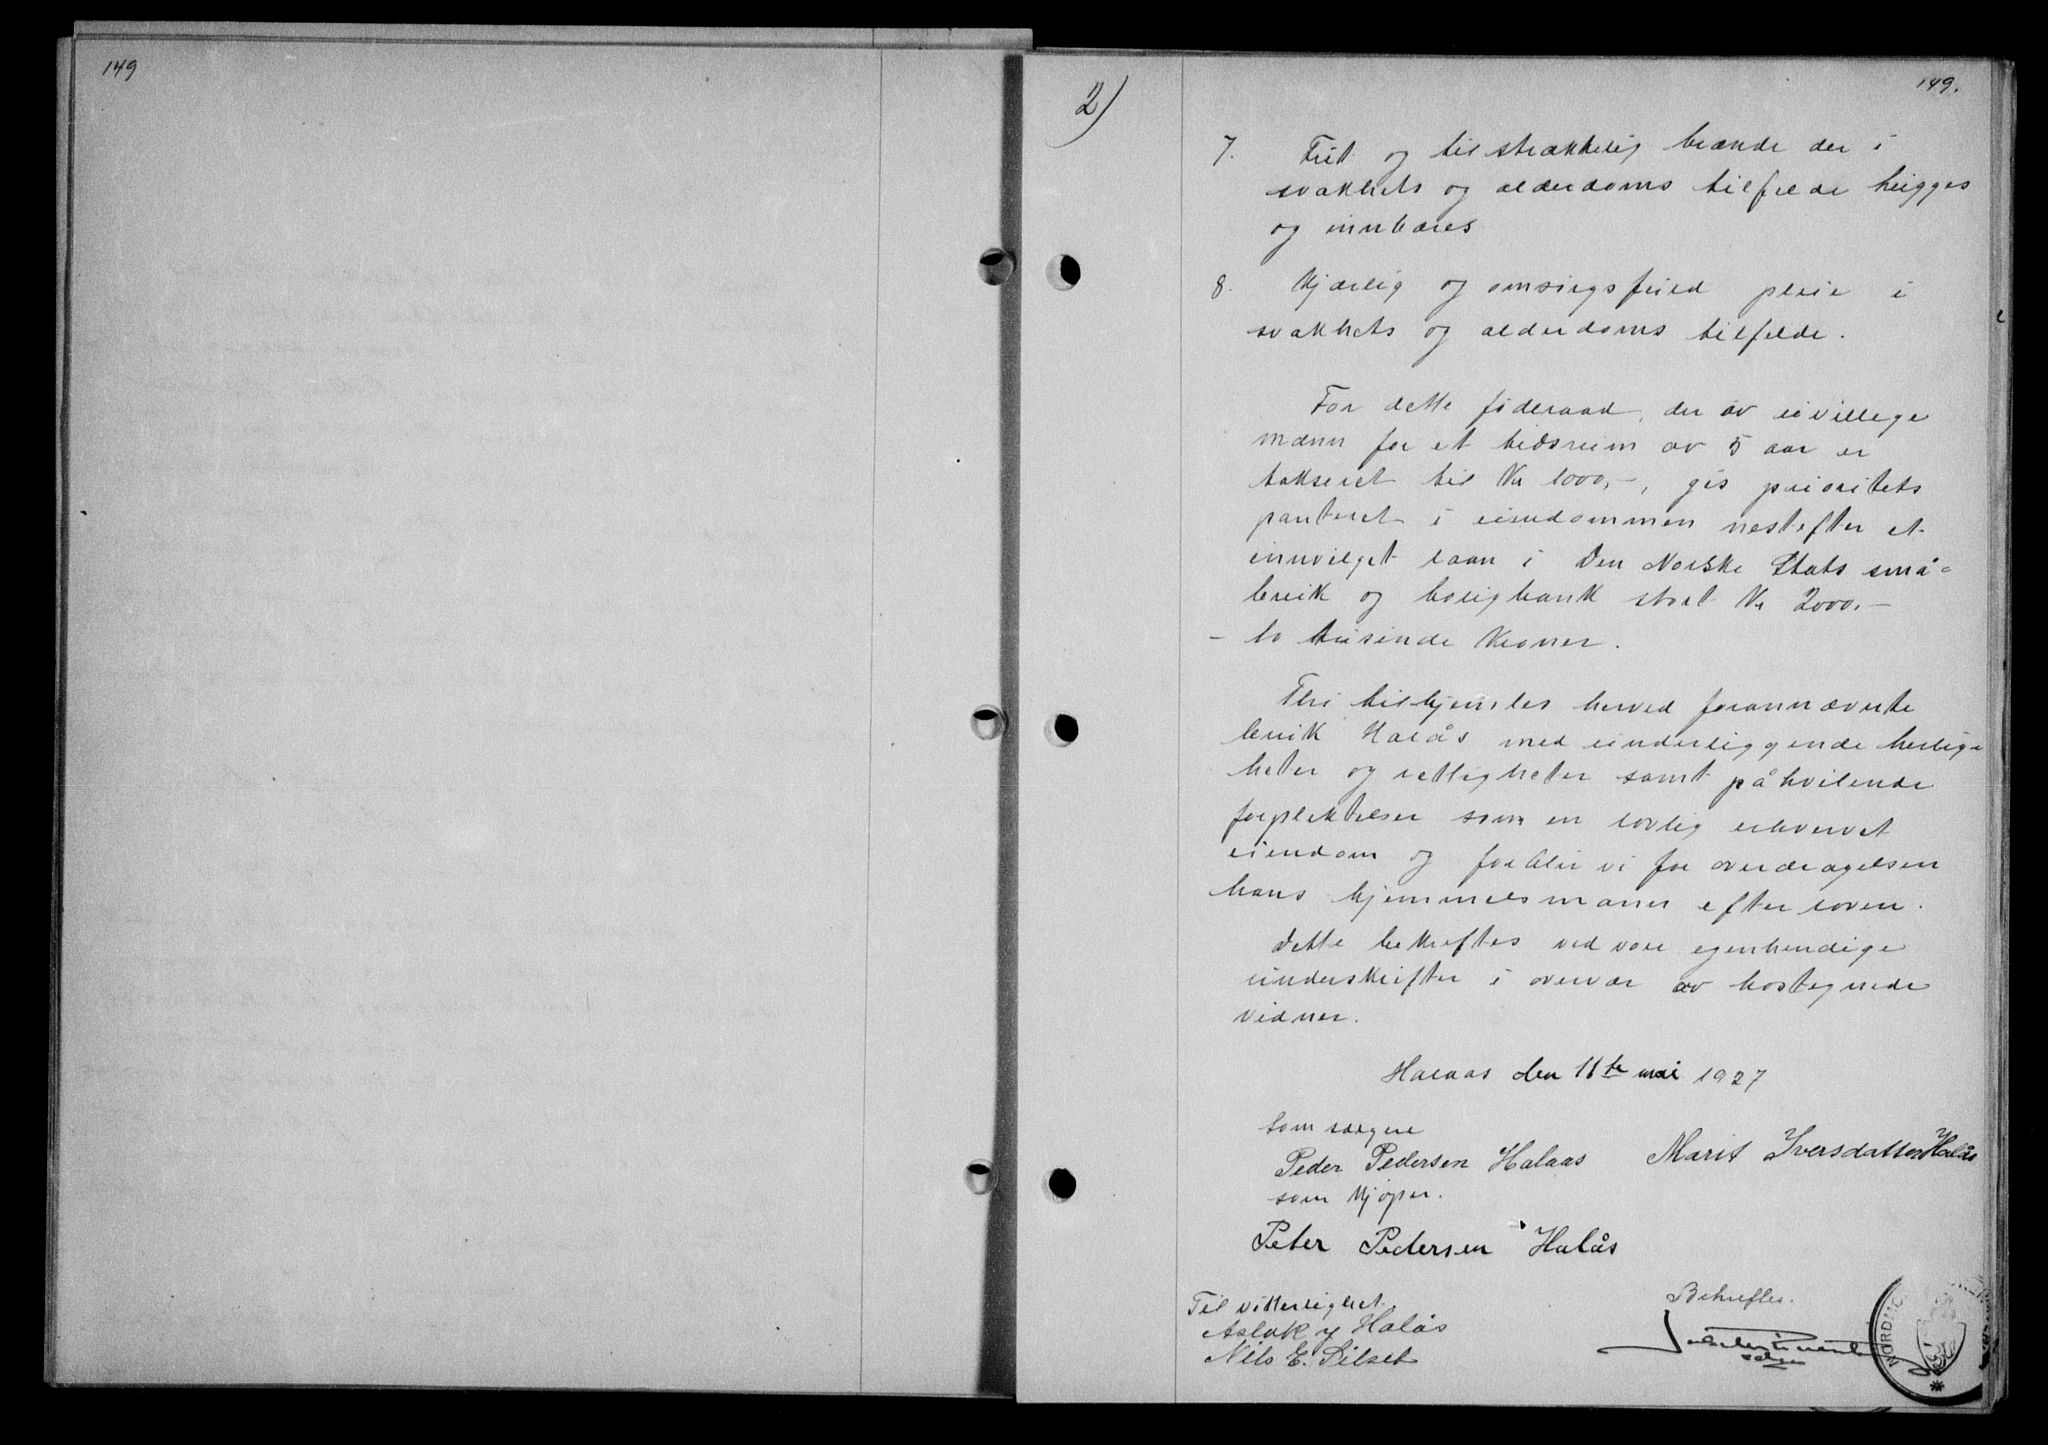 149
2)
149.
7. Frit og tilstrækkelig brænde der i
svakhets og alderdoms tilfelde hugges
og innbæres
8. Kjærlig og omsorgsfuld pleie i
svakhets og alderdoms tilfelde.
For dette føderaad, der av uvillige
mænn for et tidsrum av 5 aar er
takseret til Kr 1000,-, gis prioritets
panteret i eiendommen nestefter et
innvilget laan i Den Norske Stats små-
bruk og boligbank stort Kr 2000.-
- to tusinde Kroner.
Thi tilhjemles herved forannævnte
bruk Halås med underliggende herlig-
heter og rettigheter samt påhvilende
forpliktelser som en lovlig erhvervet
eiendom og forblir vi for overdragelsen
hans hjemmelsmann efter loven.
Dette bekreftes ved vore egenhendige
underskrifter i overvær av hostegnede
vidner.
Halaas den 11te mai 1927
Som sælgere
Peder Pedersen Halaas Marit Iversdatter Halås
som Kjøper.
Peter Pedersen Halås
Til vitterlighet. Bekreftes.
Aslak Halås
Nils E. Silset
NORDMØR